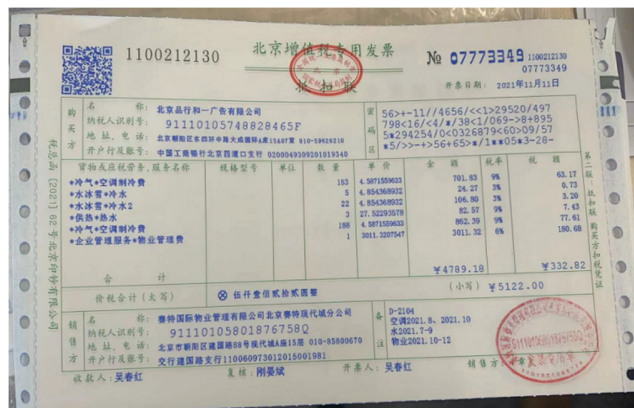 1100212130
北京增值税专用发票
抵扣联
№ 07773349
1100212130
07773349
开票日期: 2021年11月11日
税总函 [2021] 62号北京印钞有限公司
第二联:抵扣联 购买方扣税凭证
购买方
名 称: 北京品行和一广告有限公司
纳税人识别号: 91110105748828465F
地址、电话:
开户行及账号: 中国工商银行北京西道口支行 0200049309201019340
密码区
56>+-11//4656/<<1>29520/497
798<16/<4/*/38<1/069->8+895
5*294254/0<0326879<60>09/57
*5/>>-+>56+65>*/1**05*3-28-
货物或应税劳务、服务名称 规格型号 单位 数量 单价 金额 税率 税额
*冷气*空调制冷费 153 4.5871559633 701.83 9% 63.17
*水冰雪*冷水 5 4.854368932 24.27 3% 0.73
*水冰雪*冷水2 22 4.854368932 106.80 3% 3.20
*供热*热水 3 27.52293578 82.57 9% 7.43
*冷气*空调制冷费 188 4.5871559633 862.39 9% 77.61
*企业管理服务*物业管理费 1 3011.3207547 3011.32 6% 180.68
合 计 ¥4789.18 ¥332.82
价税合计(大写) ⊗ 伍仟壹佰贰拾贰圆整 (小写) ¥5122.00
销售方
名 称: 赛特国际物业管理有限公司北京赛特现代城分公司
纳税人识别号: 91110105801876758Q
地址、电话: 北京市朝阳区建国路88号现代城A座15层 010-85800670
开户行及账号: 交行建国路支行110060973012015001981
备注
D-2104
空调2021.8、2021.10
水2021.7-9
物业2021.10-12
收款人: 吴春红 复核: 刚晏斌 开票人: 吴春红 销售方:
91110105801876758Q
发票专用章